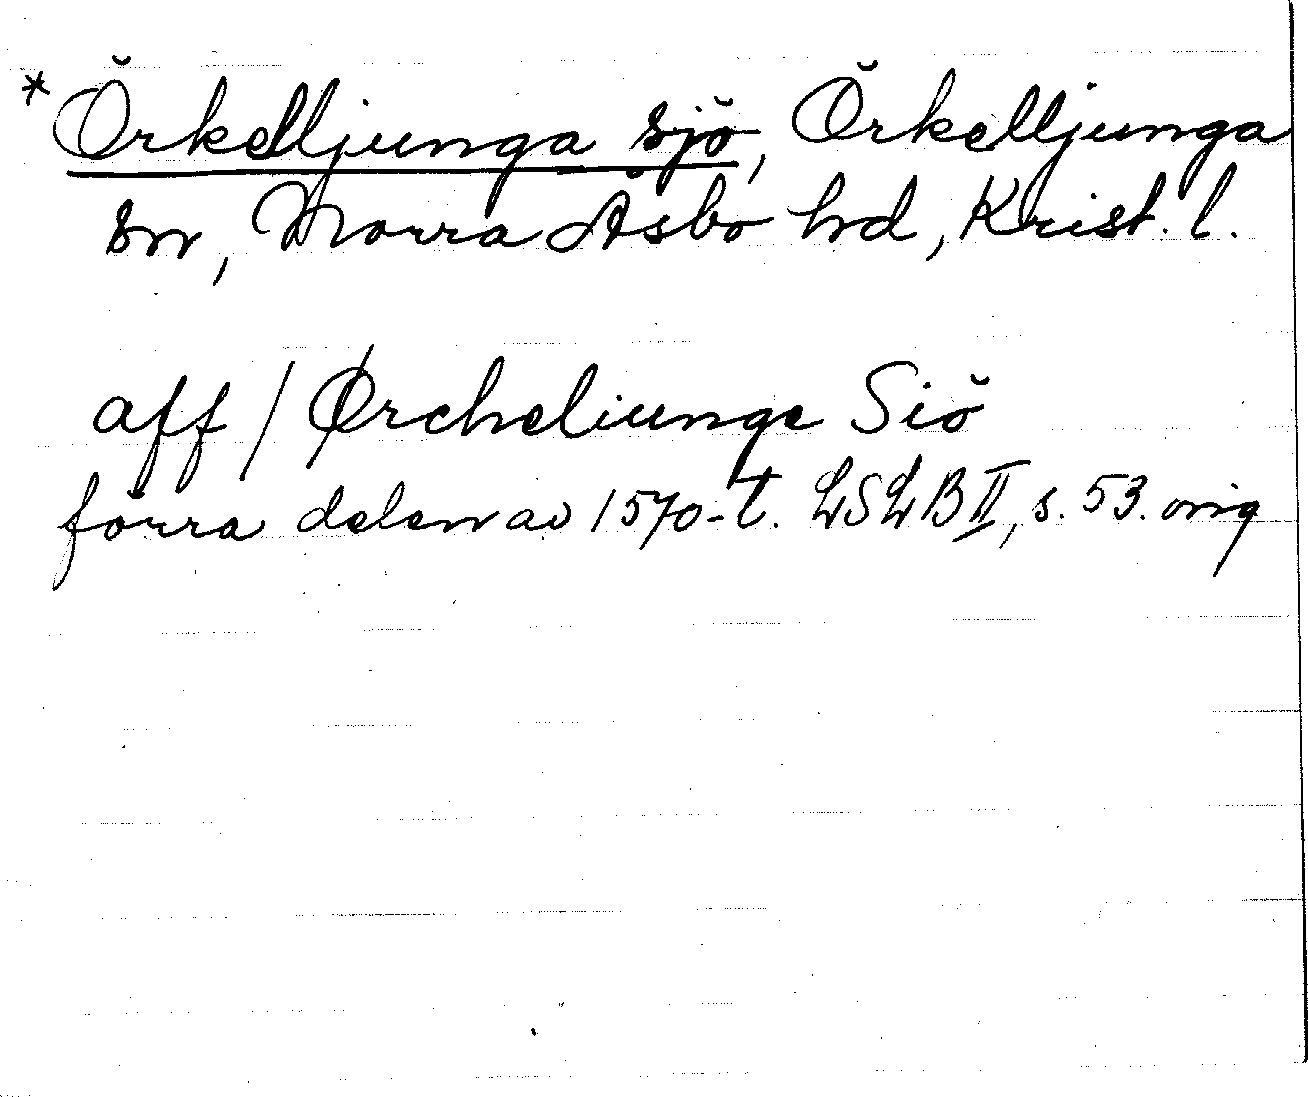 * Örkelljunga sjö, Örkelljunga
sn, Norra Åsbo hd, Krist. l.
aff / Ørcheliunge Siö
förra delen av 1570-t. LSLB II, s. 53. orig